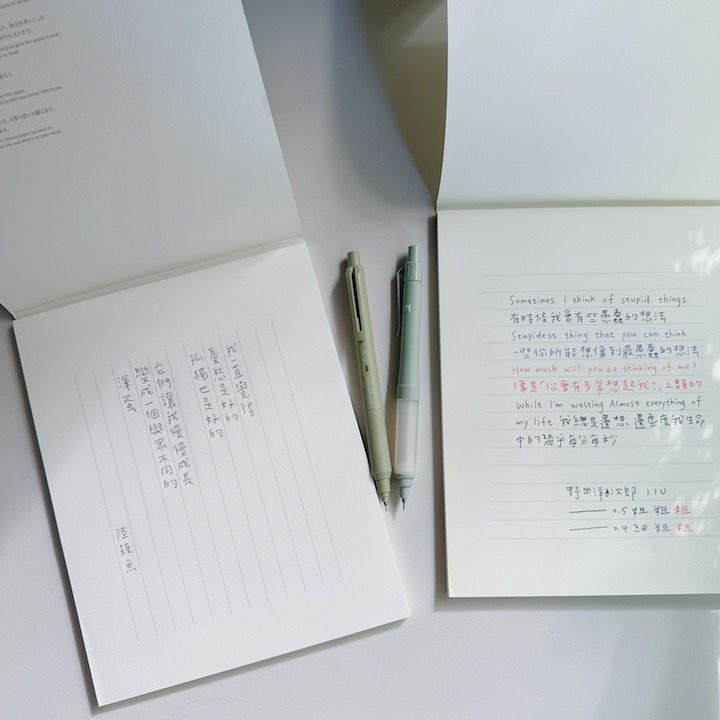 to write.
to read.
tiny gaps,
to fold your letter into three.
always paper on hand to
life and what's on your mind.
我一直覺得
憂愁是好的
孤獨也是好的
它們讓我慢慢成長
變成一個與眾不同的
渾蛋
陸穎魚
Sometimes I think of stupid things
有時候我會有些愚蠢的想法
Stupidest thing that you can think
一些你所能想像到最愚蠢的想法
How much will you be thinking of me?
像是「你會有多常想起我?」之類的
While I'm wasting Almost everything of
my life 我總是邊想 邊虛度我生命
中的幾乎每分每秒
野田洋次郎 IIU
0.5 粗 粗 粗
0.4 細 粗 粗